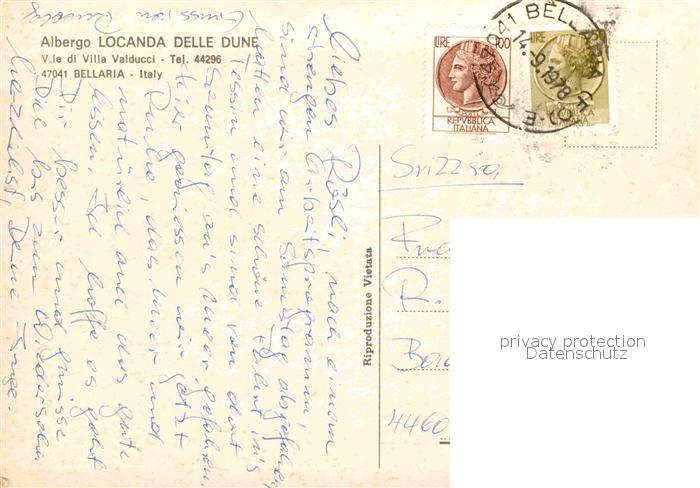 Albergo LOCANDA DELLE DUNE
V.le di Villa Valducci - Tel. 44296
47041 BELLARIA - Italy
Liebes Rösli, nach einem
strengen Arbeitsprogramm,
sind wir am Samstag abgefahren,
hatten eine schöne Fahrt ins
Tessin und sind von dort
Sonntag an's Meer gefahren.
Hier geniessen wir jetzt
Ruhe, das Meer und
natürlich auch das gute
Essen. Ich hoffe es geht
Dir besser und grüsse
Dich bis zum Wiedersehen
herzlichst, Deine
Gruss von
Riproduzione Vietata
LIRE 100
REPVBBLICA
ITALIANA
LIRE
47041 BELLARIA
14.9.1978
Svizzera
4460
privacy protection
Datenschutz